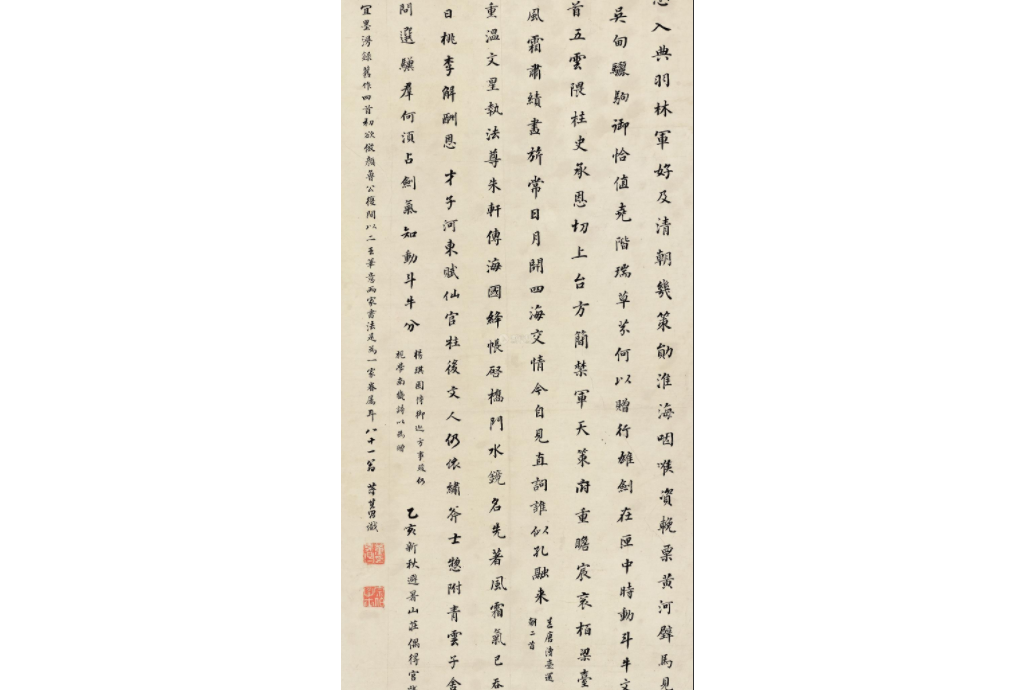 入典羽林軍好及清朝幾策勛淮海咽喉資輓粟黃河犖馬見
吳甸驪駒謝恰值堯階瑞草芬何以贈行雄劍在匣中時動斗牛文
首五雲隈柱史承恩切上台方簡禁軍天策府重瞻宸哀栢梁臺
風霜肅績畫旂常日月開四海交情今自見直詞誰似孔融來
送唐濟
嗣二首
重溫文星執法尊朱軒傳海國絳帳啓橋門水鏡名先著風霜氣已吞
日桃李解酬恩 才子河東賦仙官柱後文人仍依繡斧士惣附青雲子舍
問選驥羣何須占劍氣知動斗牛分
楊琪園侍御巡方事竣仍
視學南畿詩以為贈
乙亥新秋避暑山莊偶得官
宜墨瀋錄舊作四首初欲倣顏魯公復間以二王筆意兩家書法是為一家眷屬耳八十一翁 董其昌識